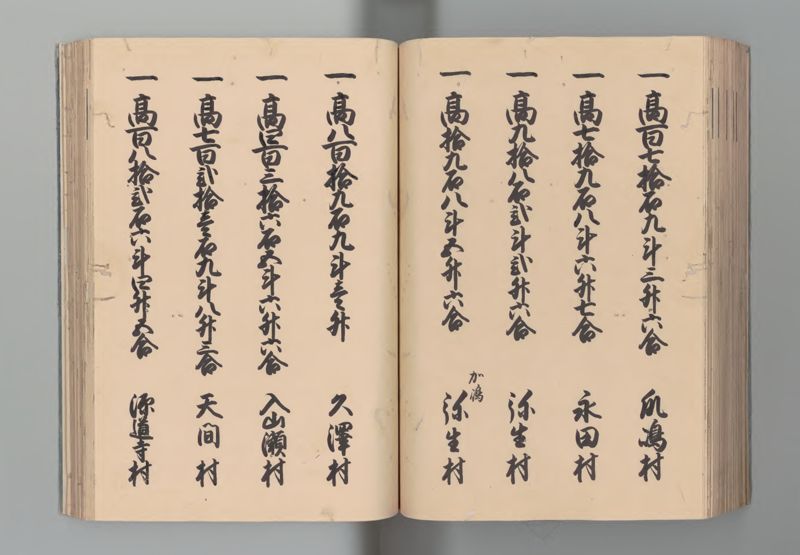 一 高百七拾石九斗三升六合 瓜嶋村
一 高七拾九石八斗六升七合 永田村
一 高九拾八石弐斗弐升六合 弥生村
一 高拾九石八斗五升六合 加嶋 弥生村
一 高八百拾九石九斗壱升 久澤村
一 高四百三拾六石五斗六升六合 入山瀬村
一 高七百弐拾壱石九斗八升三合 天間村
一 高百八拾弐石六斗四升五合 源道寺村